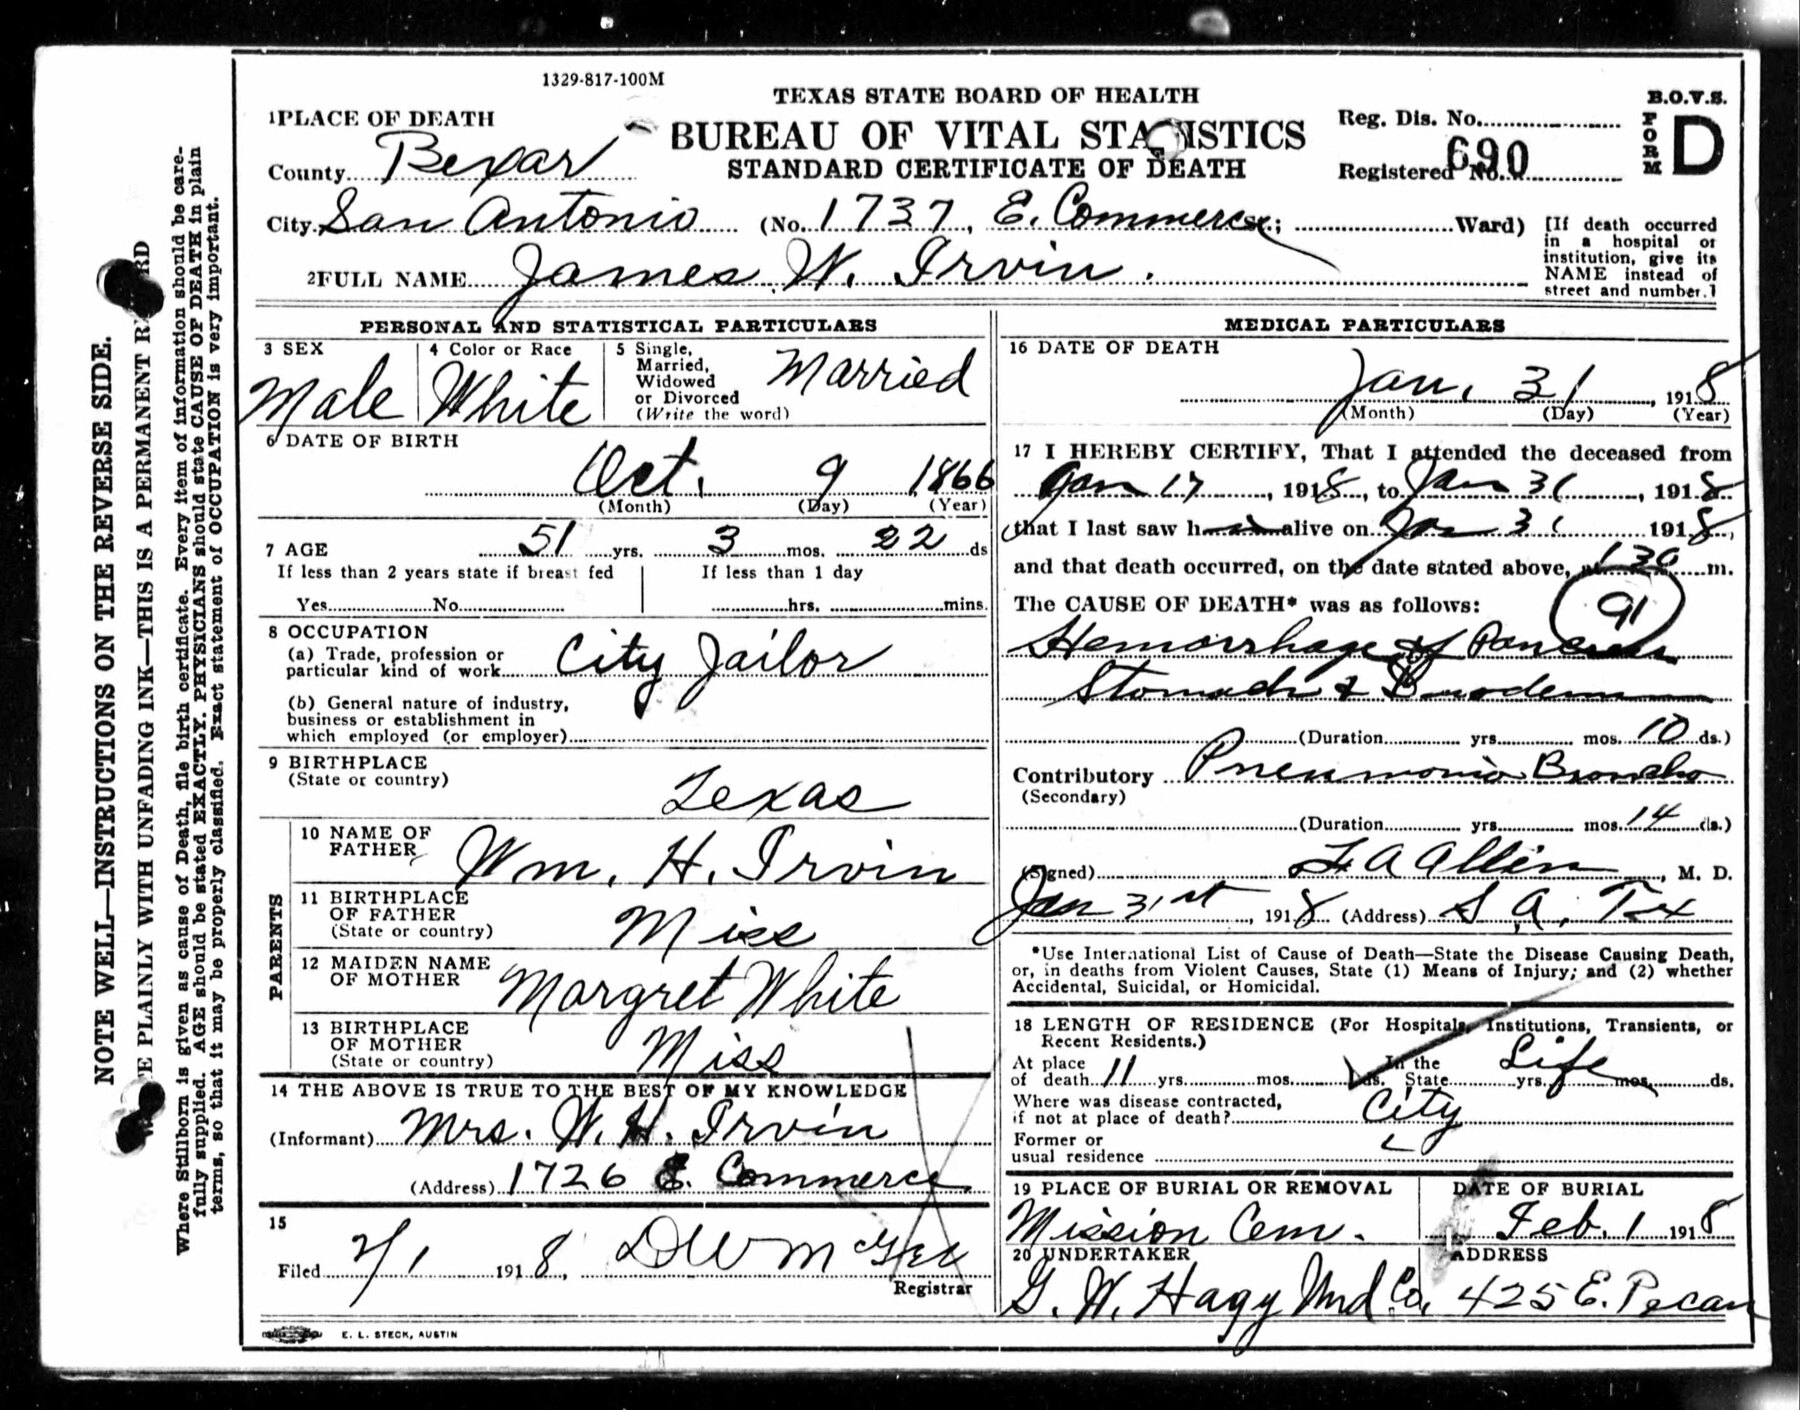 1329-817-100M
TEXAS STATE BOARD OF HEALTH
BUREAU OF VITAL STATISTICS
STANDARD CERTIFICATE OF DEATH
Reg. Dis. No.
Registered No. 690
B.O.V.S.
FORM D
1 PLACE OF DEATH
County Bexar
City San Antonio (No. 1737, E. Commerce St.; Ward)
[If death occurred
in a hospital or
institution, give its
NAME instead of
street and number.]
2 FULL NAME James W. Irvin.
PERSONAL AND STATISTICAL PARTICULARS
3 SEX
Male
4 Color or Race
White
5 Single,
Married,
Widowed
or Divorced
(Write the word)
Married
6 DATE OF BIRTH
Oct. 9 1866
(Month) (Day) (Year)
7 AGE 51 yrs. 3 mos. 22 ds
If less than 2 years state if breast fed
Yes No
If less than 1 day
hrs. mins.
8 OCCUPATION
(a) Trade, profession or
particular kind of work City Jailor
(b) General nature of industry,
business or establishment in
which employed (or employer)
9 BIRTHPLACE
(State or country)
Texas
PARENTS
10 NAME OF
FATHER Wm. H. Irvin
11 BIRTHPLACE
OF FATHER
(State or country) Miss
12 MAIDEN NAME
OF MOTHER Margret White
13 BIRTHPLACE
OF MOTHER
(State or country) Miss
14 THE ABOVE IS TRUE TO THE BEST OF MY KNOWLEDGE
(Informant) Mrs. W. H. Irvin
(Address) 1726 E. Commerce
15
Filed 2/1 1918, D W McGee
Registrar
MEDICAL PARTICULARS
16 DATE OF DEATH
Jan. 31, 1918
(Month) (Day) (Year)
17 I HEREBY CERTIFY, That I attended the deceased from
Jan 17, 1918, to Jan 31, 1918,
that I last saw h im alive on Jan 31 1918,
and that death occurred, on the date stated above, at 130 m.
The CAUSE OF DEATH* was as follows:
91
Hemorrhage of Pancreas
Stomach & Duodenum
(Duration yrs. mos. 10 ds.)
Contributory Pneumonia Broncho
(Secondary)
(Duration yrs. mos. 14 ds.)
(Signed) F A Allen, M. D.
Jan 31st, 1918 (Address) S. A. Tex
*Use International List of Cause of Death—State the Disease Causing Death,
or, in deaths from Violent Causes, State (1) Means of Injury; and (2) whether
Accidental, Suicidal, or Homicidal.
18 LENGTH OF RESIDENCE (For Hospitals, Institutions, Transients, or
Recent Residents.)
At place
of death 11 yrs. mos. ds.
In the
State Life yrs. mos. ds.
Where was disease contracted,
if not at place of death? City
Former or
usual residence
19 PLACE OF BURIAL OR REMOVAL
Mission Cem.
DATE OF BURIAL
Feb. 1 1918
20 UNDERTAKER
G. W. Hagy Und Co.
ADDRESS
425 E. Pecan
E. L. STECK, AUSTIN
NOTE WELL—INSTRUCTIONS ON THE REVERSE SIDE.
E PLAINLY WITH UNFADING INK—THIS IS A PERMANENT R RD
Where Stillborn is given as cause of Death, file birth certificate. Every item of information should be care-
fully supplied. AGE should be stated EXACTLY. PHYSICIANS should state CAUSE OF DEATH in plain
terms, so that it may be properly classified. Exact statement of OCCUPATION is very important.